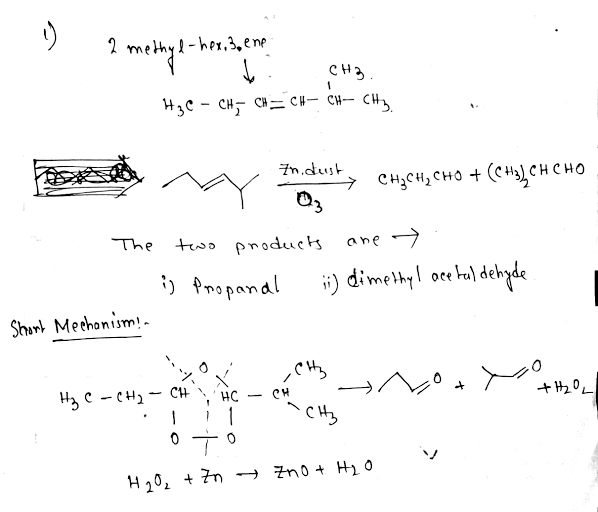 1) 2 methyl-hex,3,ene
CH3.
H3C - CH2- CH = CH- CH- CH3.
Zn.dust
CH3CH2CHO + (CH3)2CHCHO
O3
The two products are →
i) Propanal ii) dimethyl acetaldehyde
Short Mechanism:-
O CH3 O O
H3C - CH2 - CH HC - CH → + + H2O2
CH3
O O
H2O2 + Zn → ZnO + H2O